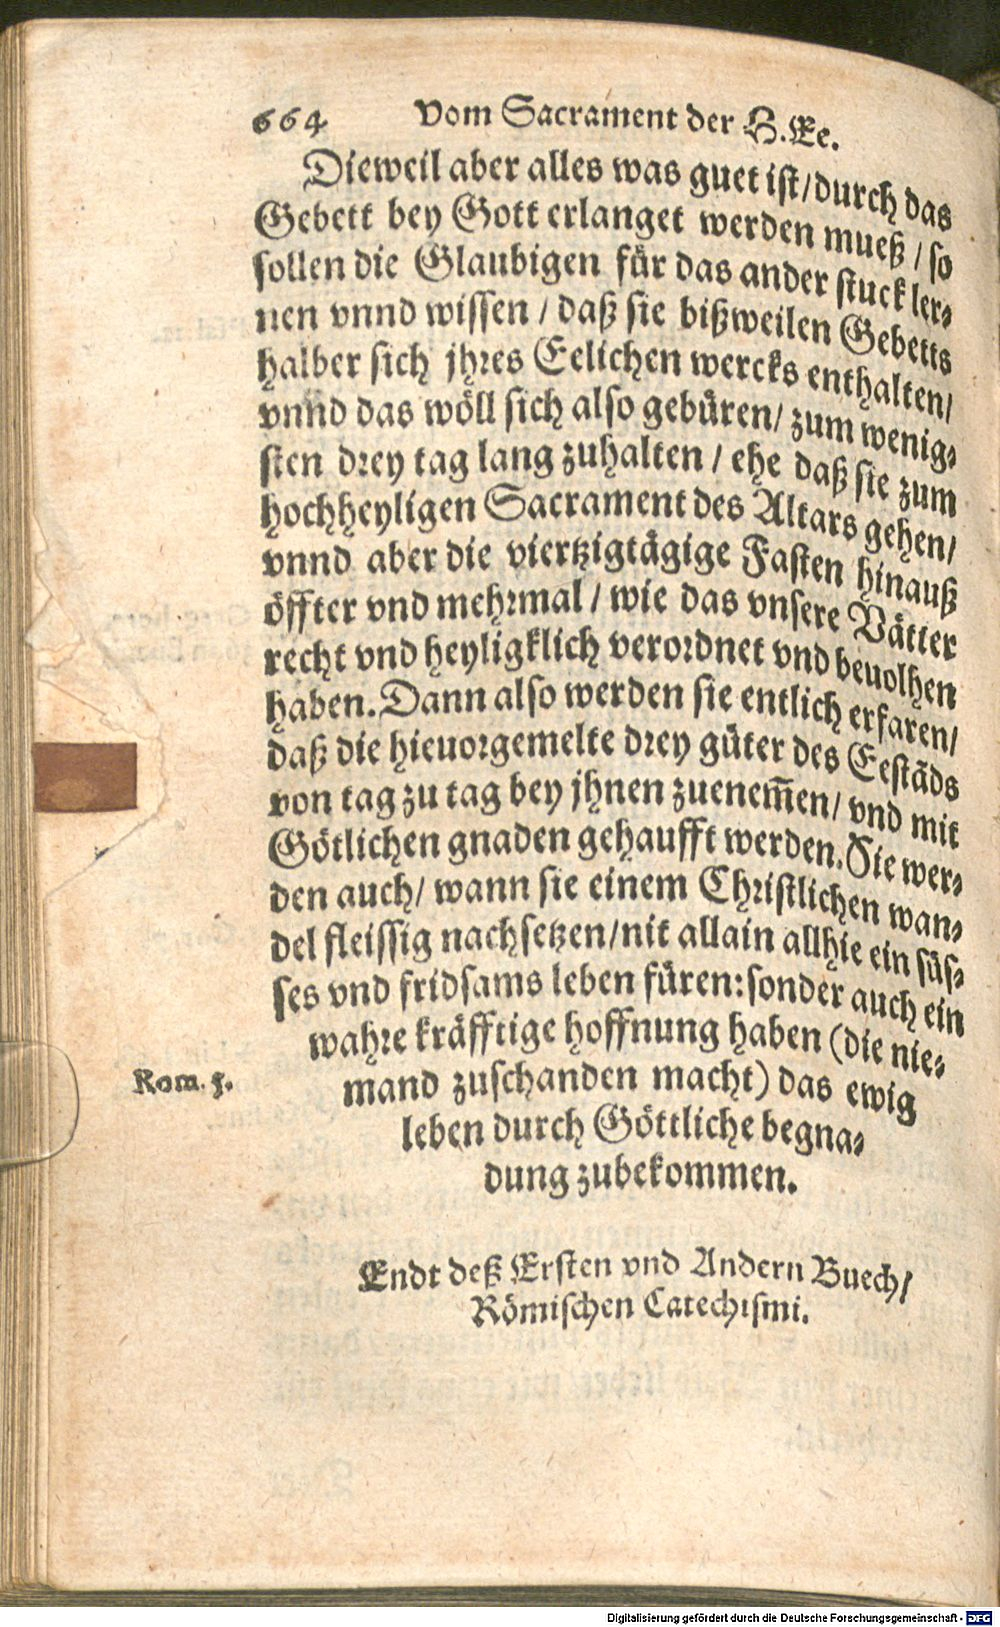 664 Vom Sacrament der H. Ee.
Dieweil aber alles was guet ist/durch das
Gebett bey Gott erlanget werden mueß / so
sollen die Glaubigen für das ander stuck ler⸗
nen vnnd wissen / daß sie bißweilen Gebetts
halber sich jhres Eelichen wercks enthalten/
vnnd das wöll sich also gebüren/ zum wenig⸗
sten drey tag lang zuhalten / ehe daß sie zum
hochheyligen Sacrament des Altars gehen/
vnnd aber die viertzigtägige Fasten hinauß
öffter vnd mehrmal / wie das vnsere Vätter
recht vnd heyligklich verordnet vnd beuolhen
haben. Dann also werden sie entlich erfaren/
daß die hieuorgemelte drey güter des Eestāds
von tag zu tag bey jhnen zuenem̄en/ vnd mit
Götlichen gnaden gehaufft werden. Sie wer⸗
den auch/ wann sie einem Christlichen wan⸗
del fleissig nachsetzen/nit allain allhie ein süs⸗
ses vnd fridsams leben füren: sonder auch ein
wahre kräfftige hoffnung haben (die nie⸗
Rom. 5. mand zuschanden macht) das ewig
leben durch Göttliche begna⸗
dung zubekommen.
Endt deß Ersten vnd Andern Buech/
Römischen Catechismi.
Digitalisierung gefördert durch die Deutsche Forschungsgemeinschaft - DFG